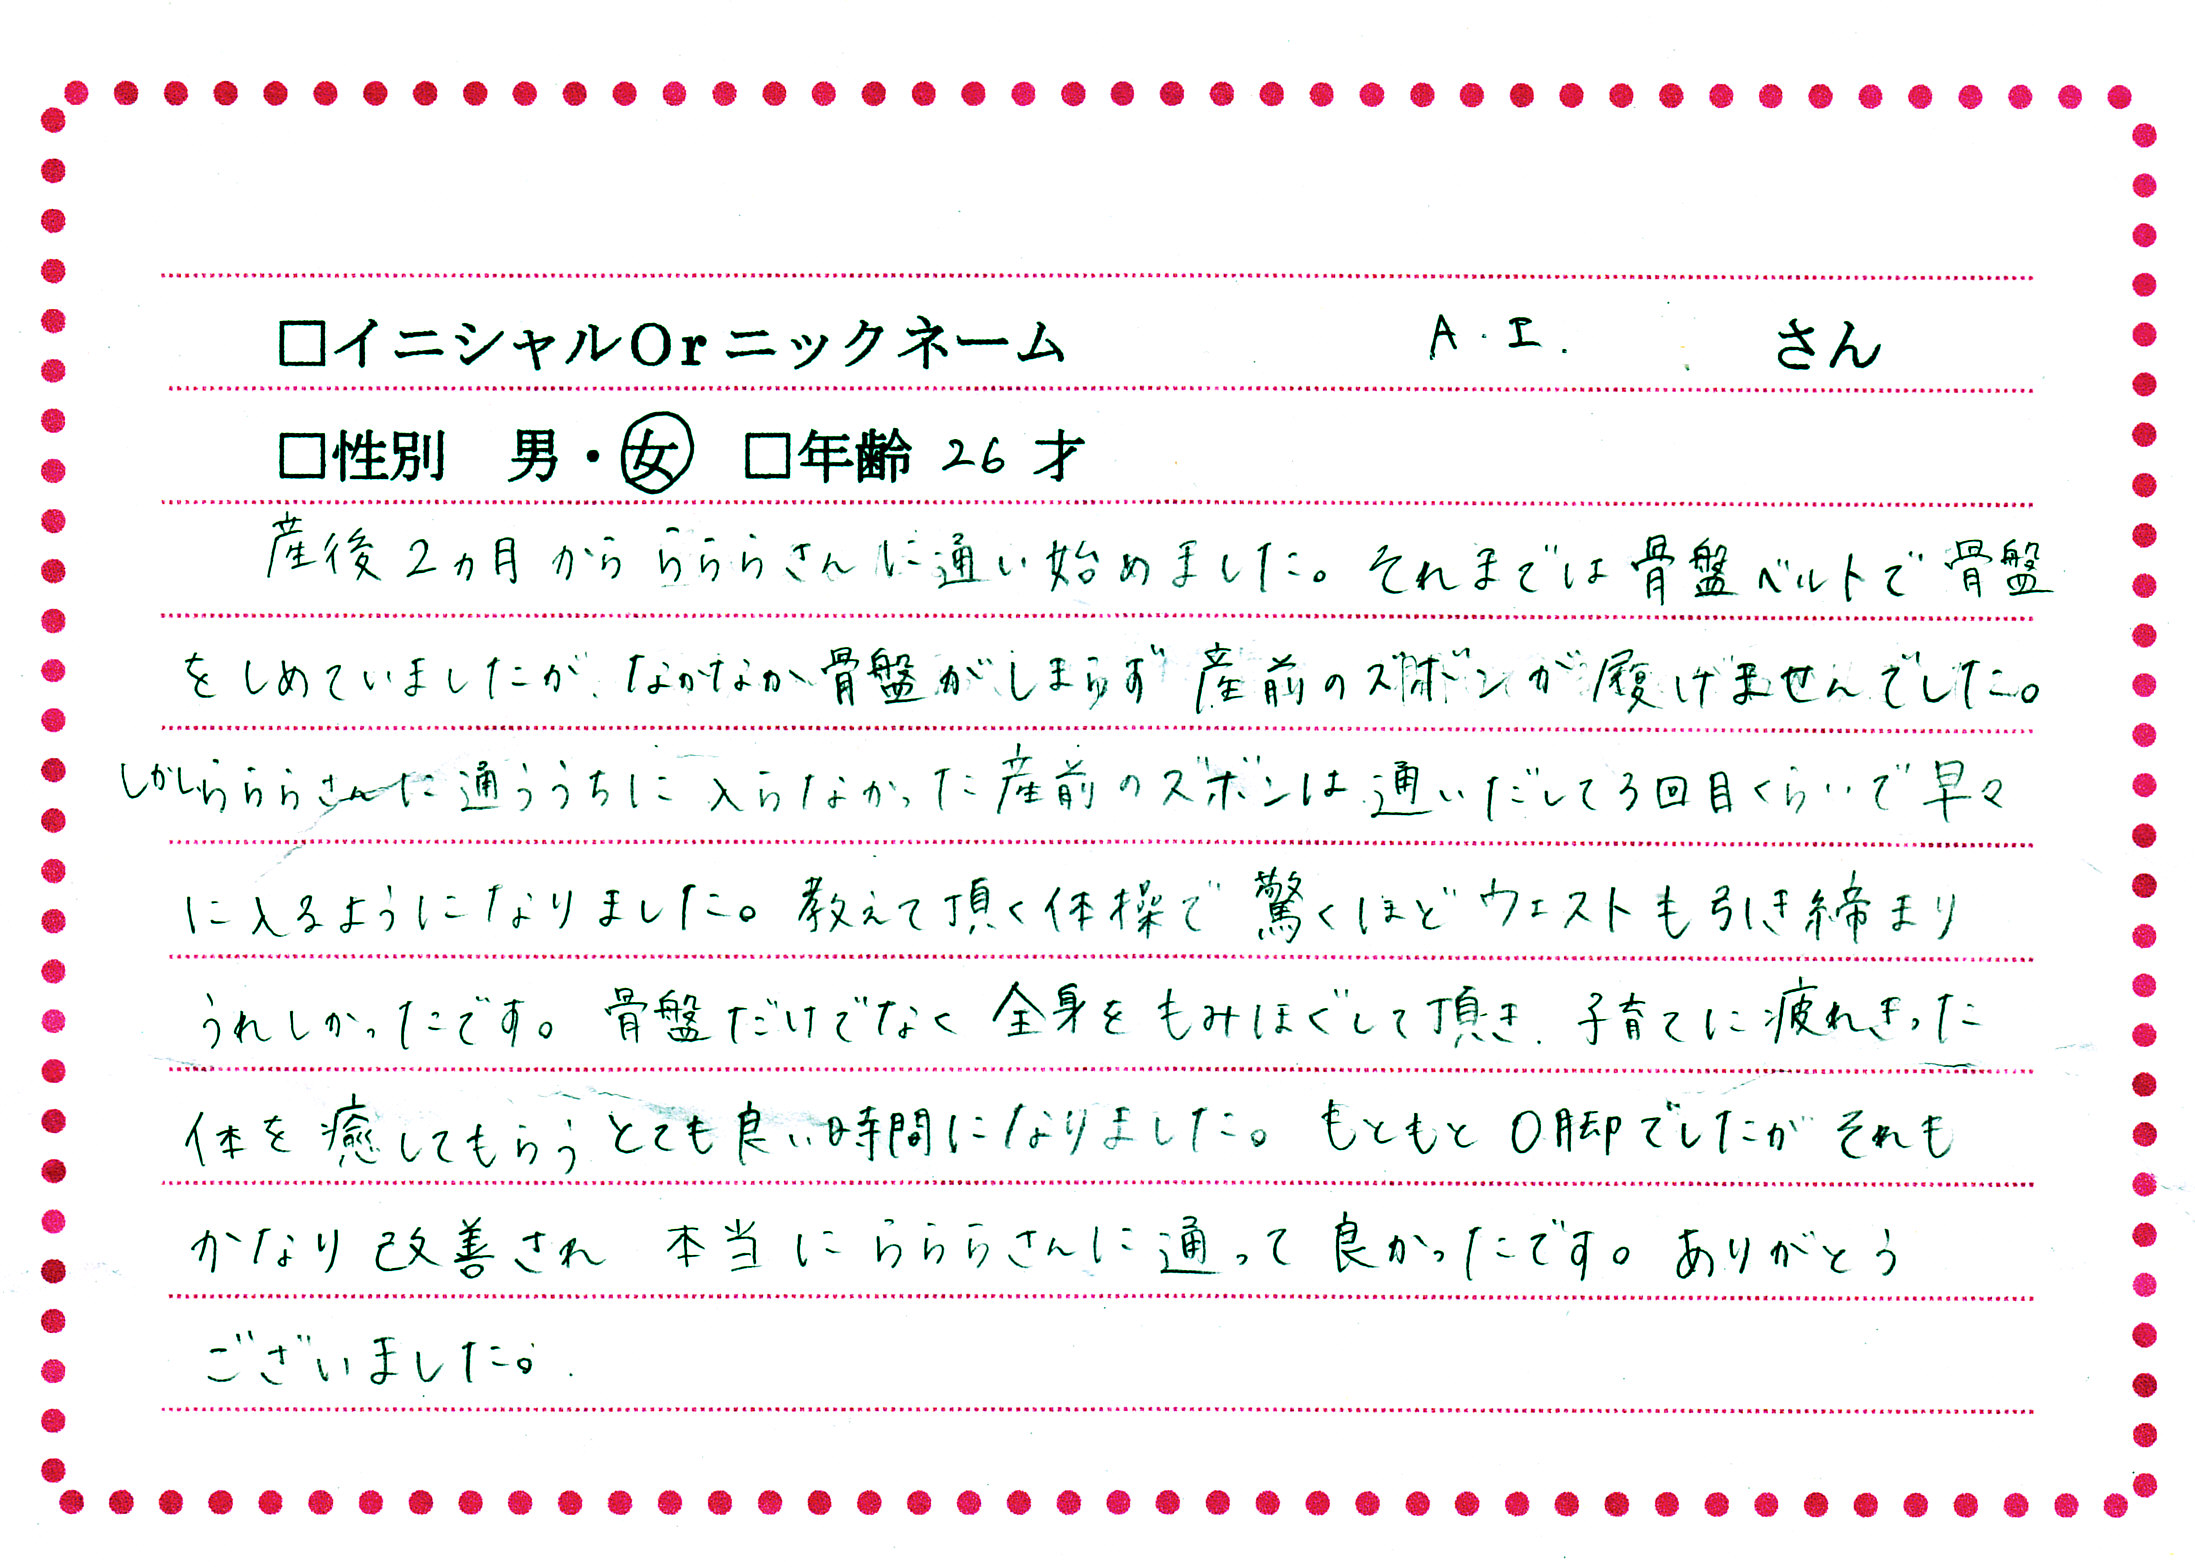 □イニシャルOrニックネーム A.I. さん
□性別 男・女 □年齢 26 才
産後2ヵ月かららららさんに通い始めました。それまでは骨盤ベルトで骨盤
をしめていましたが、なかなか骨盤がしまらず産前のズボンが履けませんでした。
しかしらららさんに通ううちに入らなかった産前のズボンは通いだして3回目くらいで早々
に入るようになりました。教えて頂く体操で驚くほどウエストも引き締まり
うれしかったです。骨盤だけでなく全身をもみほぐして頂き、子育てに疲れきった
体を癒してもらうとても良い時間になりました。もともとO脚でしたがそれも
かなり改善され 本当にらららさんに通って良かったです。ありがとう
ございました。